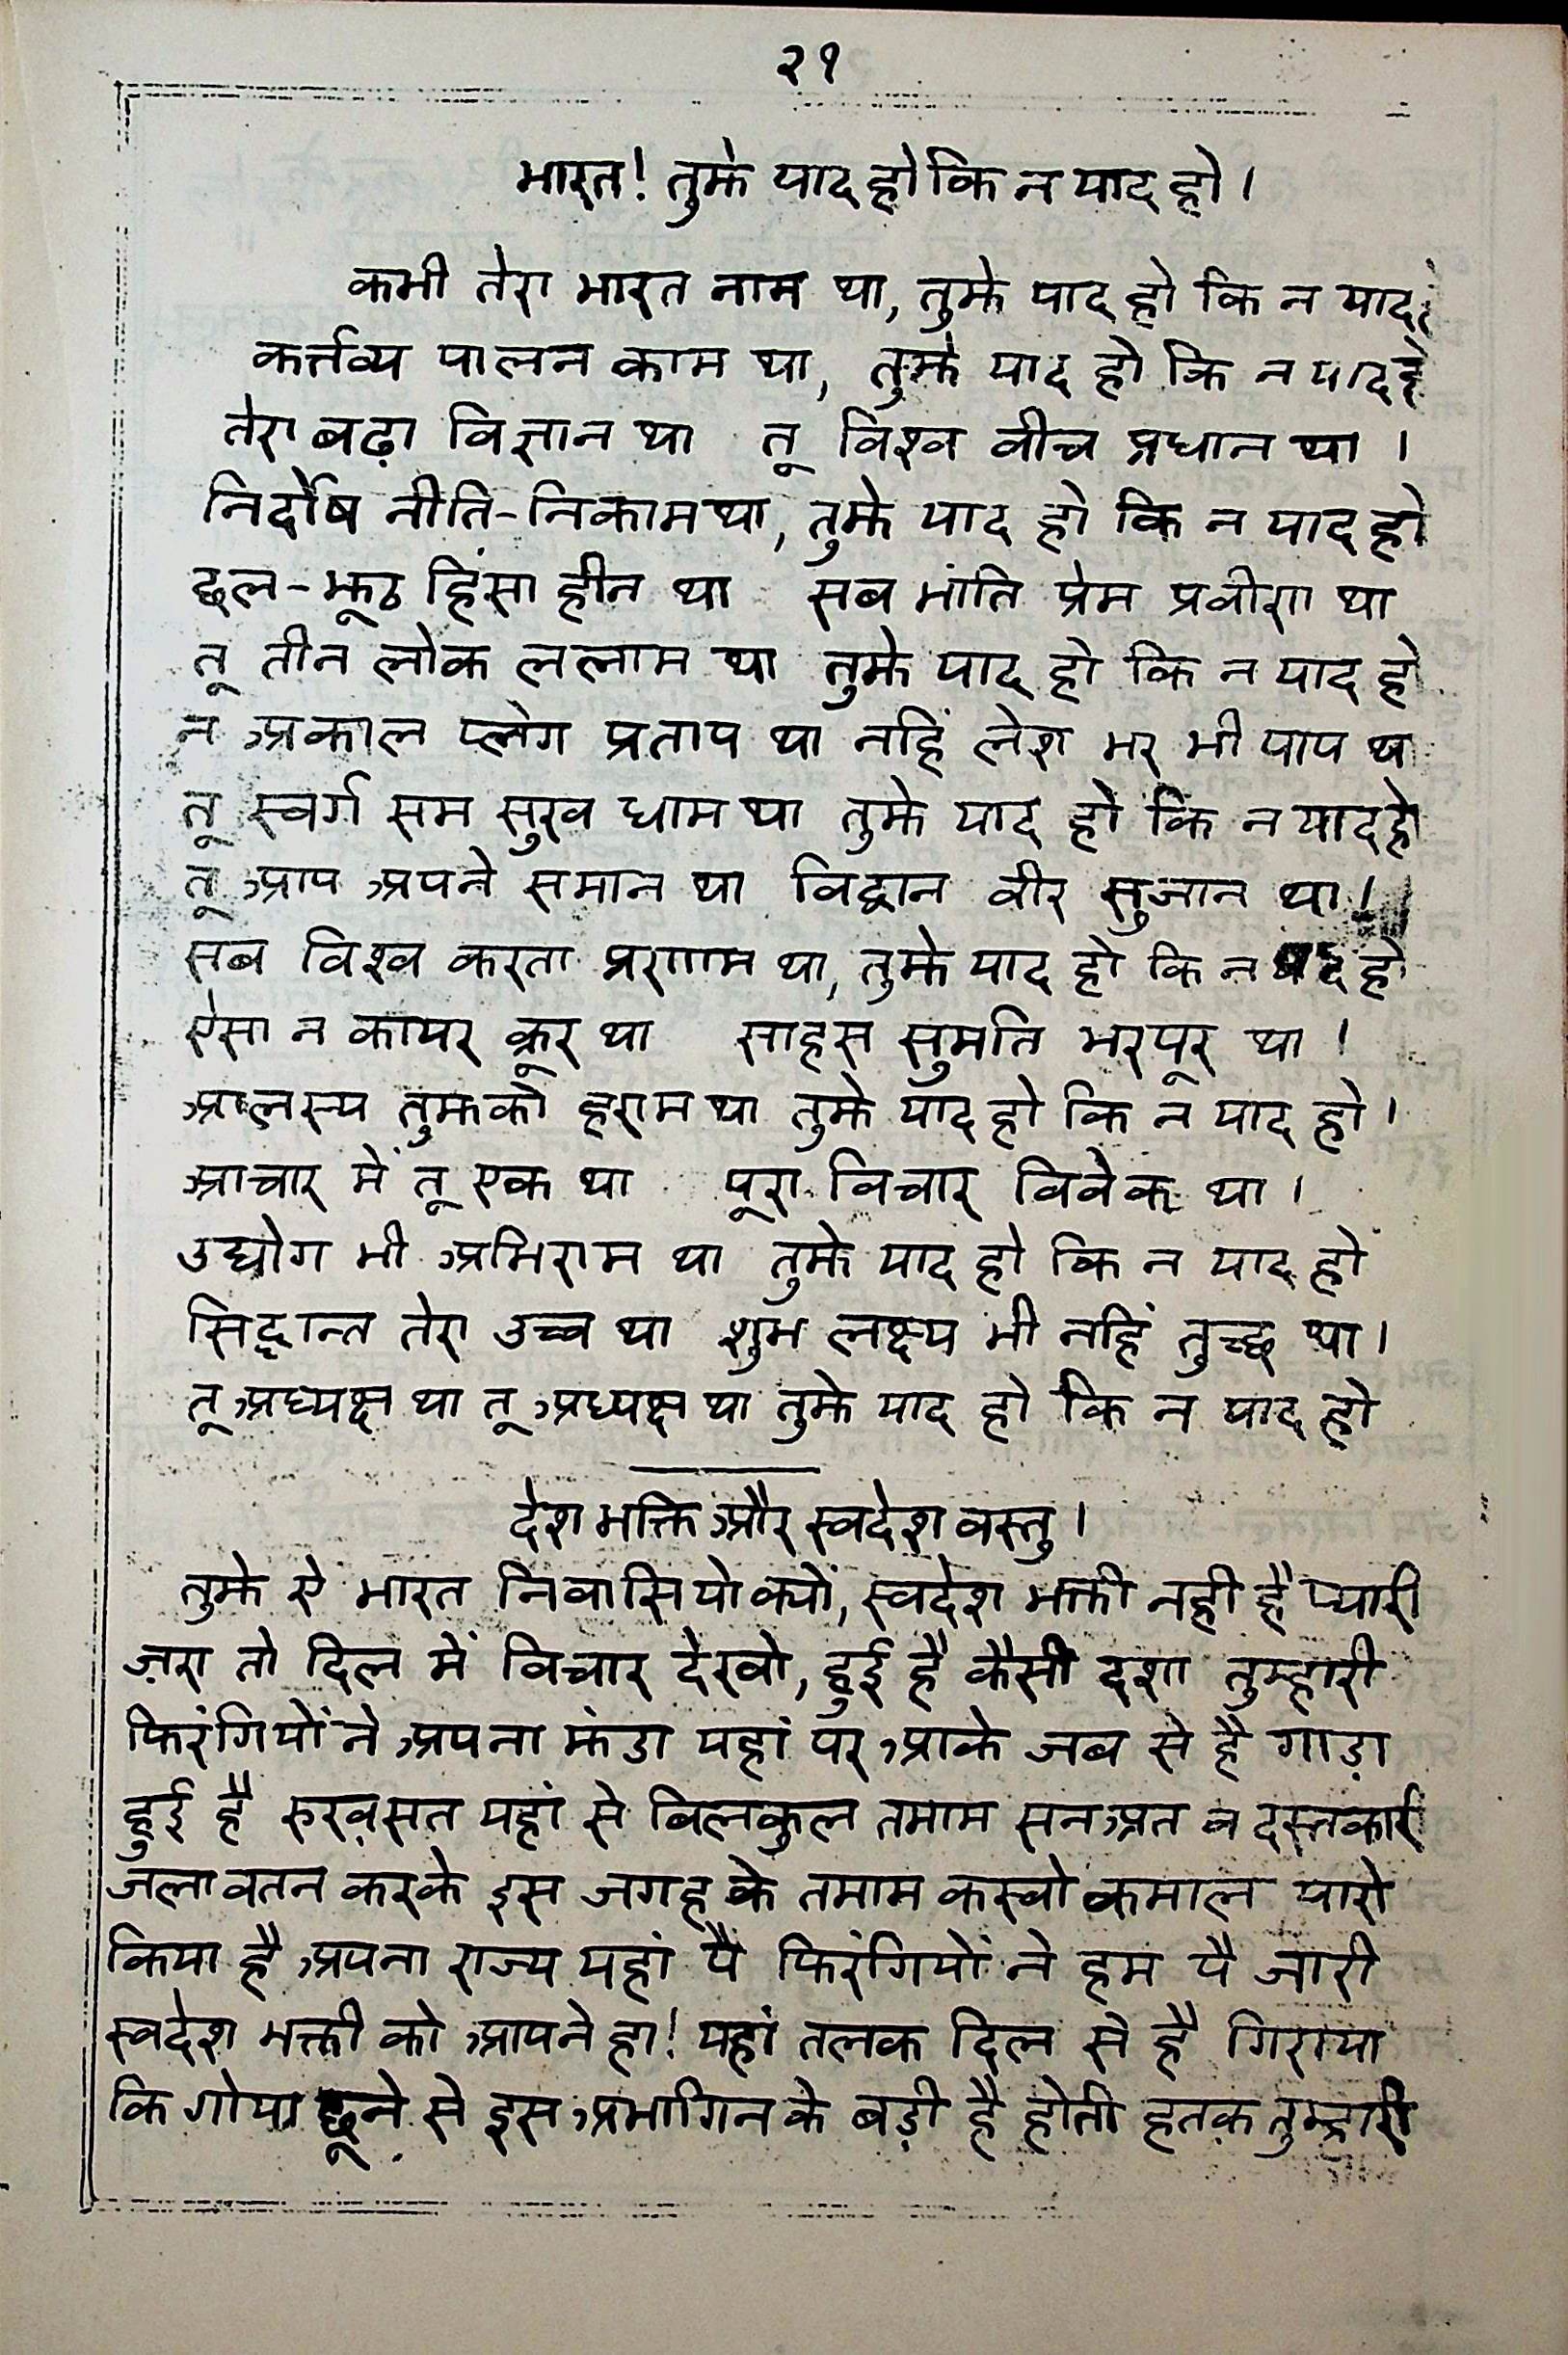 २१
भारत! तुझे याद हो कि न याद हो।
कभी तेरा भारत नाम था, तुझे याद हो कि न याद
कर्त्तव्य पालन काम था, तुझे याद हो कि न याद हो
तेरा बढ़ा विज्ञान था तू विश्व वीच प्रधान था।
निर्दोष नीति-निकाम था, तुझे याद हो कि न याद हो
छल-झूठ हिंसा हीन था सब भांति प्रेम प्रवीण था
तू तीन लोक ललाम था तुझे याद हो कि न याद हो
न अकाल प्लेग प्रताप था नहिं लेश भर भी पाप था
तू स्वर्ग सम सुख धाम था तुझे याद हो कि न याद हो
तू आप अपने समान था विद्वान वीर सुजान था!
सब विश्व करता प्रणाम था, तुझे याद हो कि न याद हो
ऐसा न कायर क्रूर था साहस सुमति भरपूर था!
आलस्य तुझको हराम था तुझे याद हो कि न याद हो।
आचार में तू एक था पूरा विचार विवेक था।
उद्योग भी अभिराम था तुझे याद हो कि न याद हो
सिद्धान्त तेरा उच्च था शुभ लक्ष्य भी नहिं तुच्छ था।
तू अध्यक्ष था तू अध्यक्ष था तुझे याद हो कि न याद हो
देश भक्ति और स्वदेश वस्तु।
तुझे ऐ भारत निवासियो क्यों, स्वदेश भक्ती नही है प्यारी
ज़रा तो दिल में विचार देखो, हुई है कैसी दशा तुम्हारी
फिरंगियों ने अपना झंडा यहां पर आके जब से है गाड़ा
हुई है रुख़सत यहां से बिलकुल तमाम सनअत व दस्तकारी
जला वतन करके इस जगह के तमाम कस्वो कमाल यारो
किया है अपना राज्य यहां पै फिरंगियों ने हम पै जारी
स्वदेश भक्ती को आपने हा! यहां तलक दिल से है गिराया
कि गोया छूने से इस अभागिन के बड़ी है होती हतक़ तुम्हारी